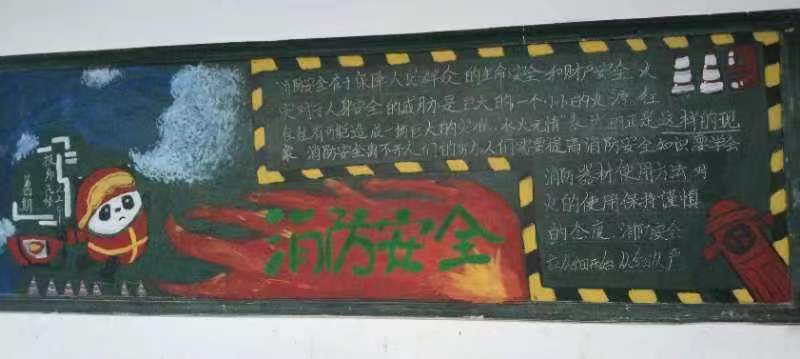 消防安全在于保障人民群众的生命安全和财产安全 火
灾对于人身安全的威力是巨大的 一个小小的火源 往
往往有可能造成一场巨大的灾难 水火无情 表达的正是这样的现
象 消防安全离不开人们的努力 人们需要提高消防安全知识 要学会
消防器材使用方法 对
火的使用保持谨慎
的态度 消防安全
第四期
消防安全